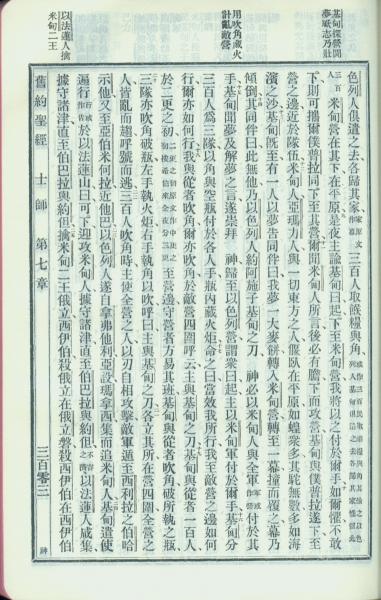 基甸探營聞
夢厥志乃壯
用吹角藏火
計亂敵營
以法蓮人擒
米甸二王
色列人俱遣之去各歸其家 三百人取餱糧與角
三百人 米甸營在其下在平原是夜主諭基甸曰起下至米甸營我將以之付於爾手如爾懼不敢
下則可攜爾僕普拉同下至其營爾聞米甸人所言後必有膽下而攻營基甸與僕普拉遂下至
營之邊近於隊伍米甸人亞瑪力人與一切東方之人偃臥在平原如蝗衆多其駝無數多如海
濱之沙基甸既至有一人以夢告同伴曰我夢一大麥餅轉入米甸營轉至一幕撞而覆之幕乃
傾倒其同伴曰此無他乃以色列人約阿施子基甸之刀 神必以米甸人與全軍付於其
手基甸聞夢及解夢之言遂崇拜 神歸至以色列營謂衆曰起主以米甸軍付於爾手基甸分
三百人爲三隊以角與空瓶付於各人手瓶內藏火炬命之曰當效我所行我至敵營之邊如何
行爾亦如何行我與從者吹角爾亦吹角於敵營四圍呼云主與基甸之刀基甸與從者一百人
於二更之初 至營邊守營者方易其班基甸與從者吹角破所執之瓶
三隊亦吹角破瓶左手執火炬右手執角以吹呼曰主與基甸之刀各立其所在營四圍全營之
人皆亂而趨呼號而逃三百人吹角時主使全營之人以刃自相攻擊敵軍遁至西利拉之伯哈
示他又至亞伯米何拉近他巴以色列人遂自拿弗他利亞設瑪拿西集而追米甸人基甸遣使
遍行於以法蓮山曰可下迎攻米甸人據守諸津直至伯巴拉與約但 以法蓮人咸集
據守諸津直至伯巴拉與約但擒米甸二王俄立西伊伯殺俄立在俄立磐殺西伊伯在西伊伯
舊約聖經 士師 第七章 三百零二 神